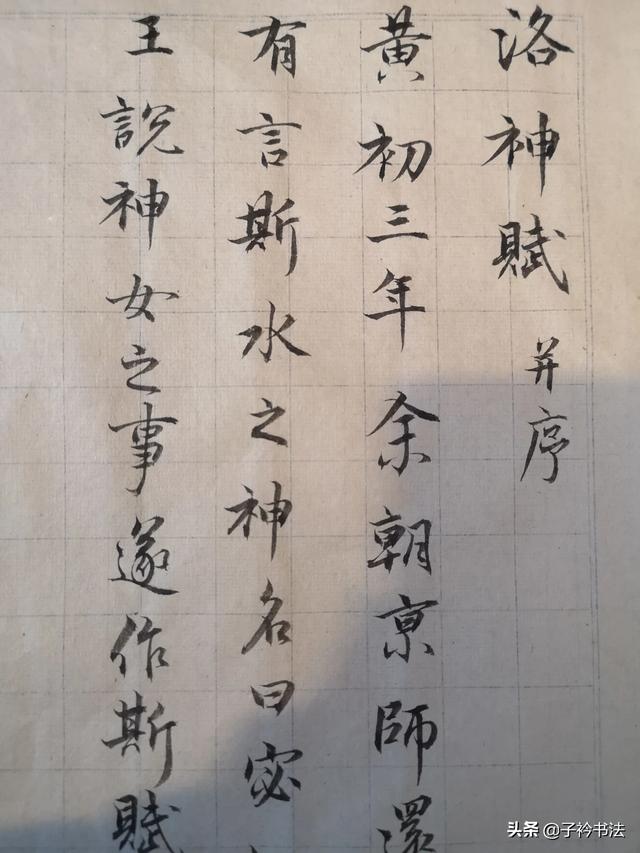 洛神賦并序
黄初三年余朝京師還
有言斯水之神名曰宓
王說神女之事遂作斯賦
头条@子衿书法